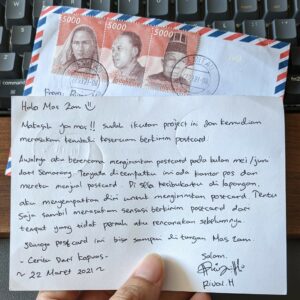 5000
5000
5000
From:
Halo Mas Zam
Makasih ya mas!! sudah ikutan project ini dan kemudian
merasakan kembali keseruan berkirim postcard.
Awalnya aku berencana mengirimkan postcard pada bulan mei/juni
dari Semarang. Ternyata ditempatku ini ada kantor pos dan
mereka menjual postcard. Di sela kesibukanku di lapangan,
aku menyempatkan diri untuk mengirimkan postcard. Tentu
saja sambil merasakan sensasi berkirim postcard dari
tempat yang tidak pernah aku rencanakan sebelumnya
semoga postcard ini bisa sampai di tangan Mas Zam
- Cerita dari Kapuas -
~ 22 Maret 2021 ~
Salam,
Rival.H